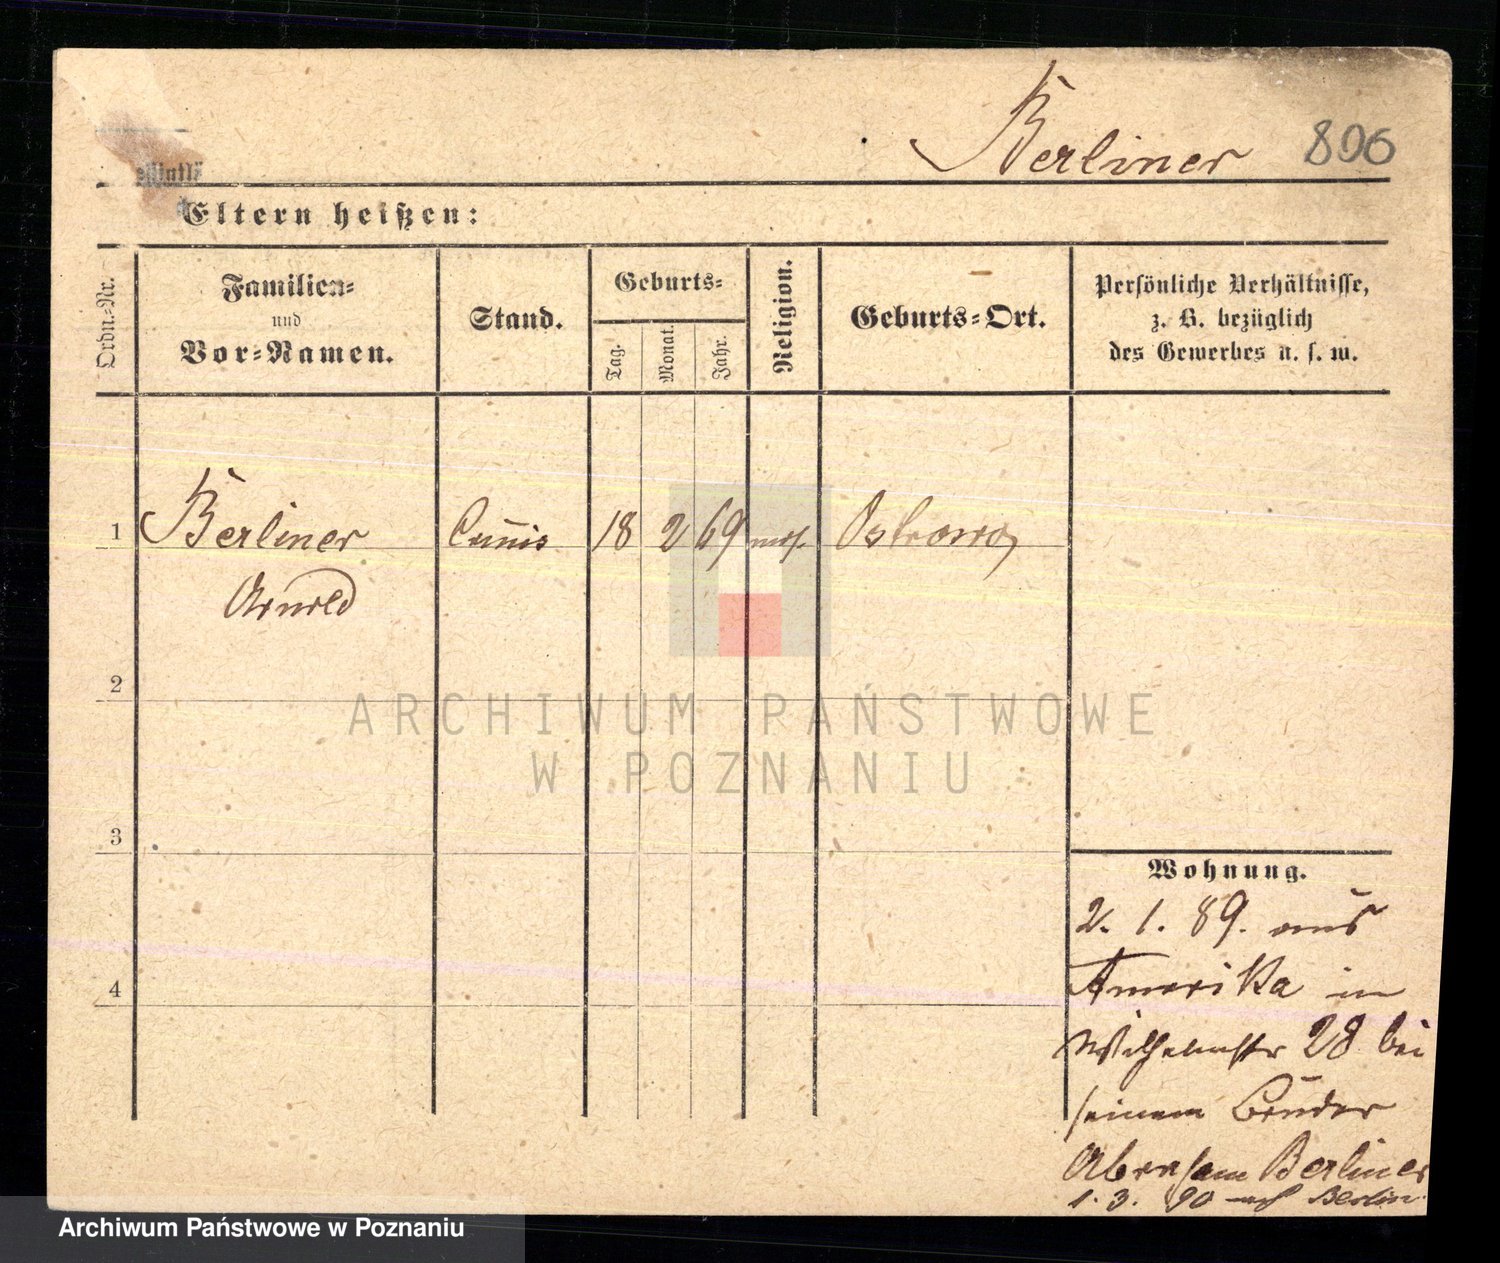 Berliner 806
Eltern heißen:
Ordn.-Nr.
Familien-
und
Vor-Namen.
Stand.
Geburts-
Tag.
Monat.
Jahr.
Religion.
Geburts-Ort.
Persönliche Verhältnisse,
z. B. bezüglich
des Gewerbes u. s. w.
1 Berliner Com̅is 18 2 69 mos. Ostrowo
Arnold
2
3
4
Wohnung.
2. 1. 89. aus
Amerika in
Wilhelmstr 28 bei
seinem Bruder
Abraham Berliner
1. 3. 90 nach Berlin.
ARCHIWUM PAŃSTWOWE
W POZNANIU
Archiwum Państwowe w Poznaniu